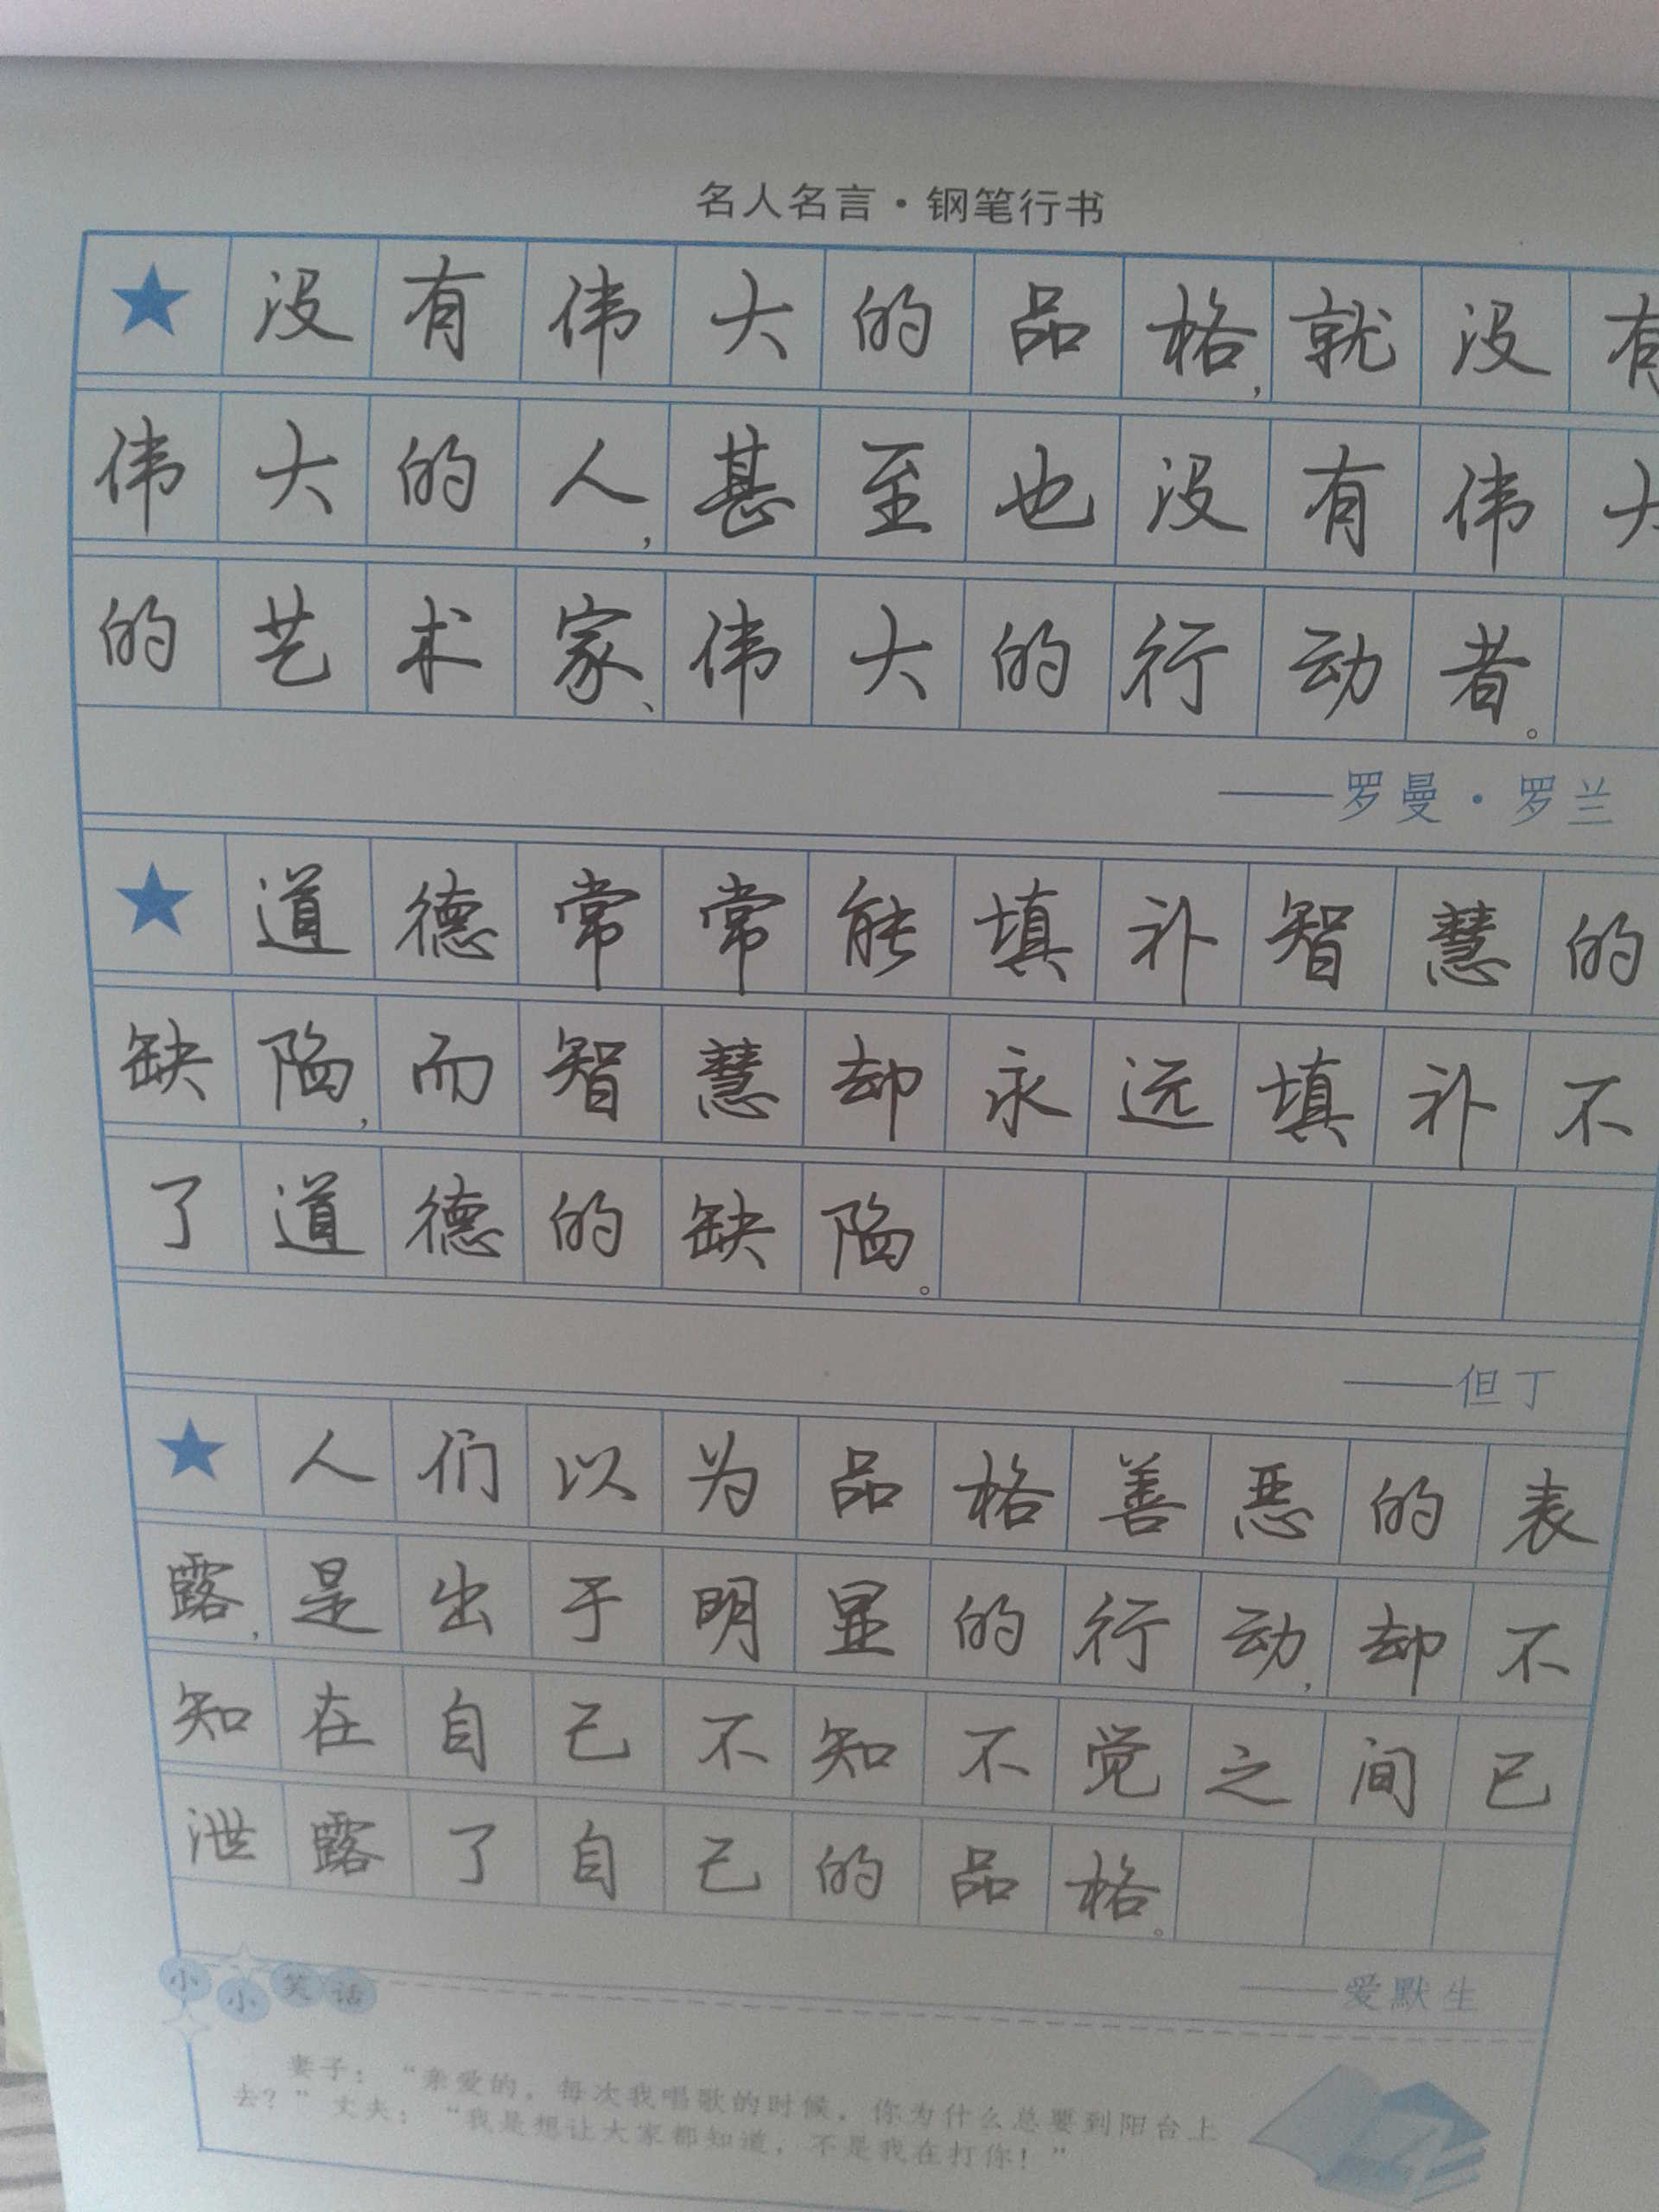 名人名言·钢笔行书
★没有伟大的品格,就没有
伟大的人,甚至也没有伟大
的艺术家、伟大的行动者。
——罗曼·罗兰
★道德常常能填补智慧的
缺陷,而智慧却永远填补不
了道德的缺陷。
——但丁
★人们以为品格善恶的表
露,是出于明显的行动,却不
知在自己不知不觉之间已
泄露了自己的品格。
——爱默生
小小笑话
妻子：“亲爱的，每次我唱歌的时候，你为什么总要到阳台上
去？”丈夫：“我是想让大家都知道，不是我在打你！”